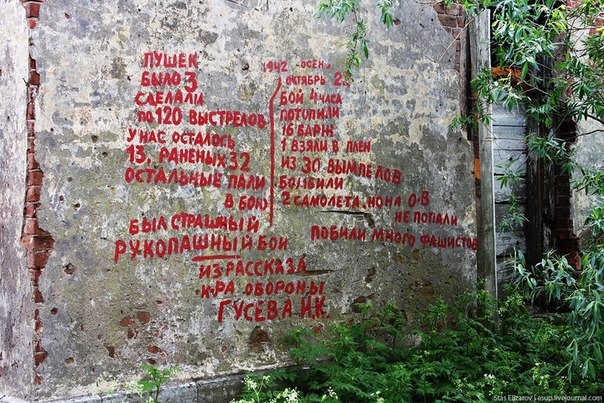 ПУШЕК
БЫЛО 3
СДЕЛАЛИ
ПО 120 ВЫСТРЕЛОВ
У НАС ОСТАЛОСЬ
13, РАНЕНЫХ 32
ОСТАЛЬНЫЕ ПАЛИ
В БОЮ
1942 -ОСЕНЬ
ОКТЯБРЬ 22
БОЙ 4 ЧАСА
ПОТОПИЛИ
16 БАРЖ
1 ВЗЯЛИ В ПЛЕН
ИЗ 30 ВЫМПЕЛОВ
БОМБИЛИ
2 САМОЛЕТА, НО НА О-В
НЕ ПОПАЛИ
ПОБИЛИ МНОГО ФАШИСТОВ
БЫЛ СТРАШНЫЙ
РУКОПАШНЫЙ БОЙ
ИЗ РАССКАЗА
К-РА ОБОРОНЫ
ГУСЕВА И.К.
Stas Elizarov | esup.livejournal.com